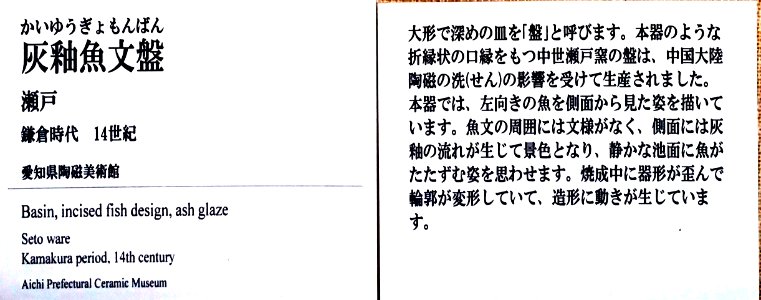 かいゆうぎょもんばん
灰釉魚文盤
瀬戸
鎌倉時代　14世紀
愛知県陶磁美術館
Basin, incised fish design, ash glaze
Seto ware
Kamakura period, 14th century
Aichi Prefectural Ceramic Museum
大形で深めの皿を「盤」と呼びます。本器のような
折縁状の口縁をもつ中世瀬戸窯の盤は、中国大陸
陶磁の洗(せん)の影響を受けて生産されました。
本器では、左向きの魚を側面から見た姿を描いて
います。魚文の周囲には文様がなく、側面には灰
釉の流れが生じて景色となり、静かな池面に魚が
たたずむ姿を思わせます。焼成中に器形が歪んで
輪郭が変形していて、造形に動きが生じていま
す。